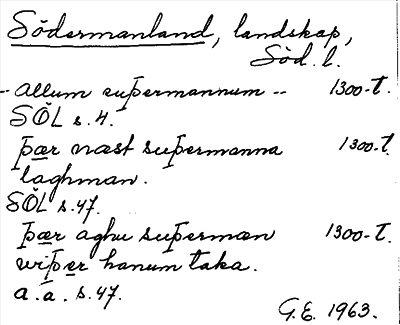 Södermanland, landskap,
Söd. l.
-- allum suþermannum -- 1300-t.
SÖL s. 4.
þær næst suþermanna 1300-t.
laghman.
SÖL s. 47.
þær aghu suþermæn 1300-t.
wiþer hanum taka.
a. a. s. 47.
G.E. 1963.